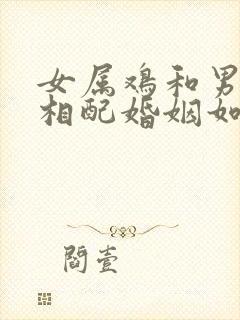 女属鸡和男
相配婚姻如
阎壹